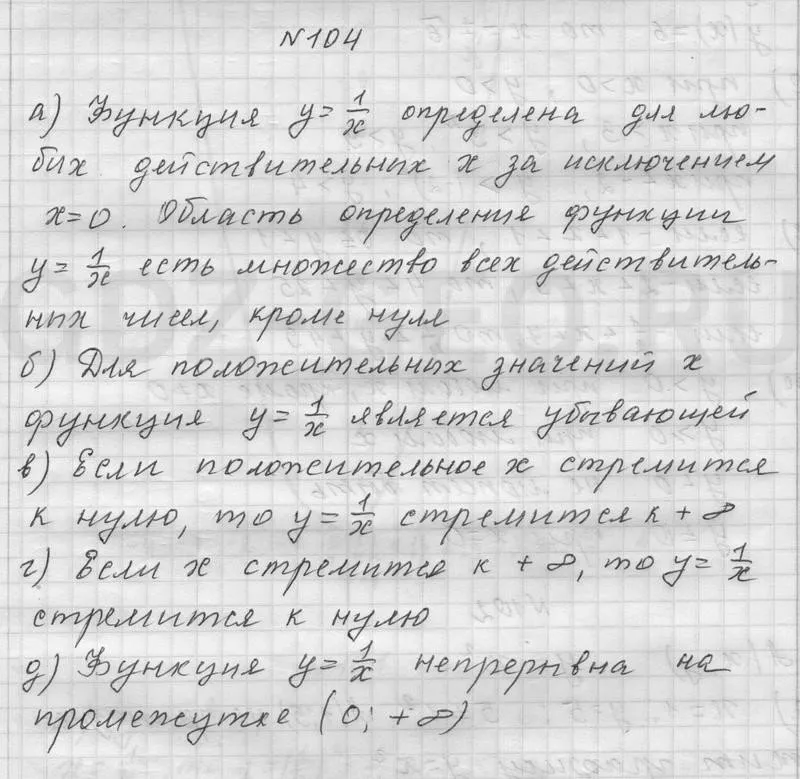 №104
а) Функция y = 1/x определена для лю-
бых действительных x за исключением
x=0. Область определения функции
y = 1/x есть множество всех действитель-
ных чисел, кроме нуля
б) Для положительных значений x
функция y = 1/x является убывающей
в) Если положительное x стремится
к нулю, то y = 1/x стремится к + ∞
г) Если x стремится к + ∞, то y = 1/x
стремится к нулю
д) Функция y = 1/x непрерывна на
промежутке (0; + ∞)